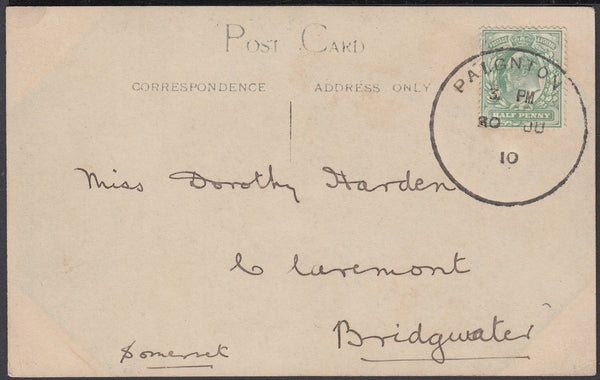 POST CARD
CORRESPONDENCE ADDRESS ONLY
PAIGNTON
3 PM
30 JU
10
HALF PENNY
Miss Dorothy Harden
Claremont
Bridgwater
Somerset